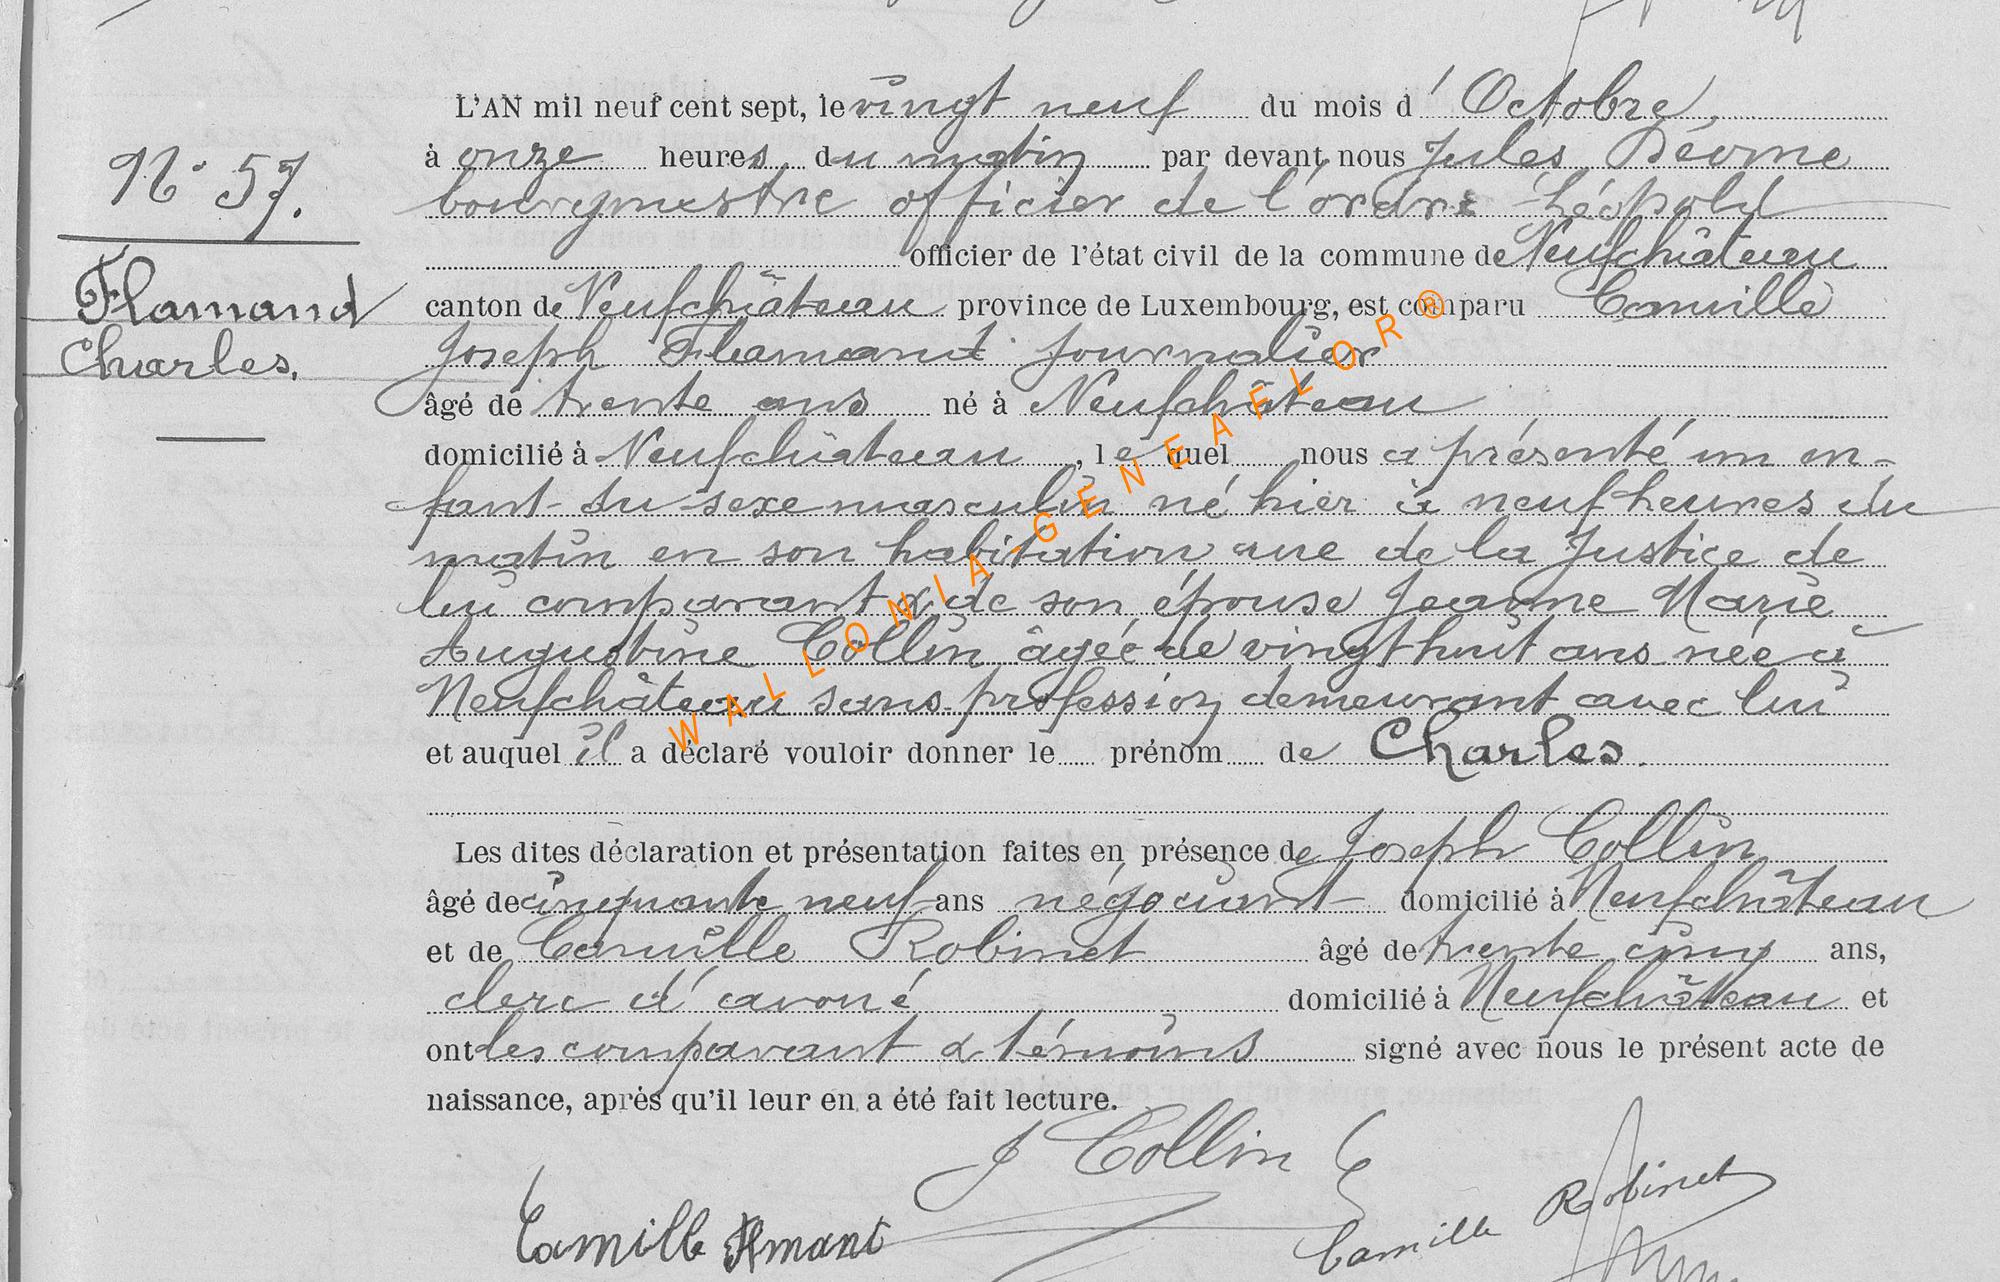 L'AN mil neuf cent sept, le vingt neuf du mois d'Octobre,
à onze heures du matin par devant nous Jules
bourgmestre officier de l'ordre Léopold
officier de l'état civil de la commune de Neufchâteau
canton de Neufchâteau province de Luxembourg, est comparu Camille
Joseph Flamand journalier
âgé de trente ans né à Neufchâteau
domicilié à Neufchâteau, lequel nous a présenté un en-
fant du sexe masculin né hier à neuf heures du
matin en son habitation rue de la Justice de
lui comparant & de son épouse Jeanne Marie
Augustine Collin âgée de vingt huit ans née à
Neufchâteau sans profession demeurant avec lui
et auquel il a déclaré vouloir donner le prénom de Charles.
N° 57.
Flamand
Charles.
Les dites déclaration et présentation faites en présence de Joseph Collin
âgé de cinquante neuf ans négociant domicilié à Neufchâteau
et de Camille Robinet âgé de trente cinq ans,
clerc d'avoué domicilié à Neufchâteau et
ont les comparant & témoins signé avec nous le présent acte de
naissance, après qu'il leur en a été fait lecture.
J Collin
Camille Camille Robinet
WALLONIA-GENEAFLOR®